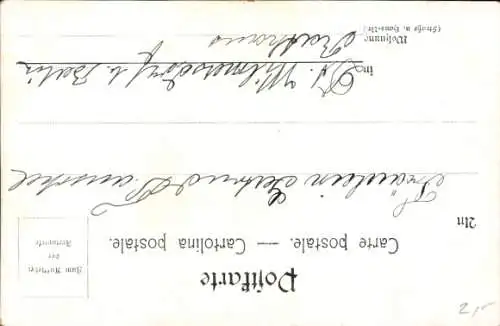 Postkarte
Carte postale. — Cartolina postale.
Zum Aufkleben
der
Freimarke
An
Fräulein Gertrud
in D. Wilmersdorf b. Berlin
Wohnung
(Straße u. Haus-Nr.)
Rathaus
2,-